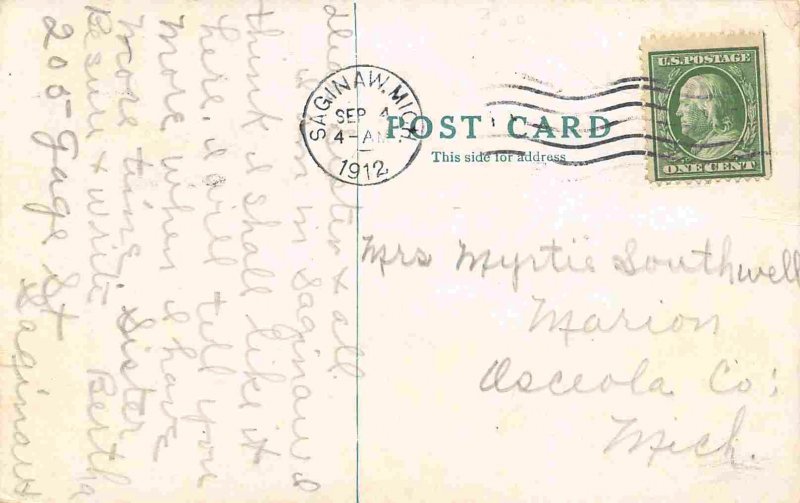 U.S. POSTAGE
ONE CENT
SAGINAW, MICH.
SEP 4
4-AM
1912
POST CARD
This side for address
Mrs Myrtie Southwell
Marion
Osceola Co:
Mich.
dear sister & all.
am in Saginaw I
think I shall like it
here. I will tell you
more when I have
more time. Sister
Be sure & write Bertha
205 Gage St
Saginaw